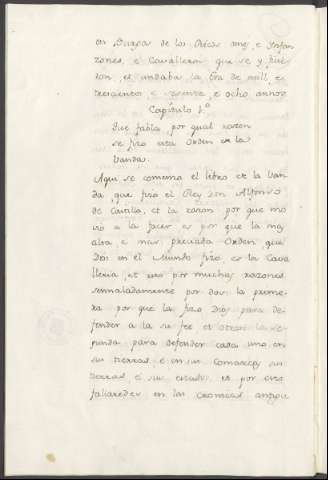 en Burgos de los Ricos omes, e Infan-
zones, e Cavalleros que se y fize-
ron, et andaba la Era de mill, et
trecientos e sesenta, e ocho annos
Capítulo 1.º
Que fabla, por qual razon
se fizo esta Orden de la
Vanda.
Aqui se comienza el libro de la Van-
da, que fizo el Rey Don Alfonso
de Castilla, et la razon por que mo-
vio a la facer es por que la mas
alta e mas preciada Orden, que
Dios en el Mundo fizo, es la Cava-
lleria, et esto por muchas razones
sennaladamente por dos: la prime-
ra por que la fizo Dios para de-
fender a la su fee et otrosi la se-
gunda para defender cada uno en
su tierras e en sus Comarcas sus
tierras e sus estados, et por esto
fallaredes en las cronicas antigu-